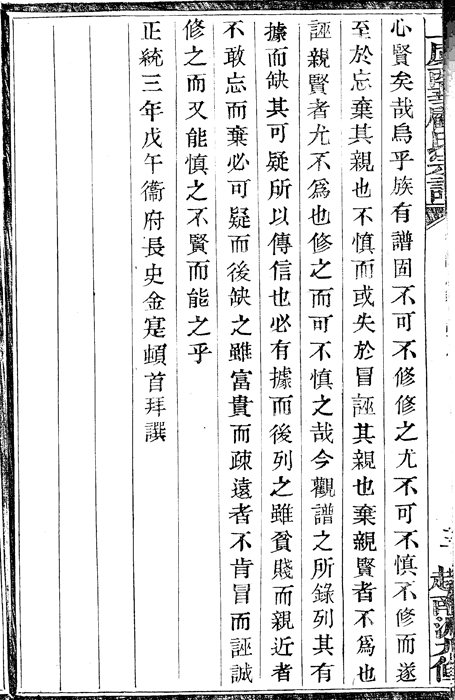 心賢矣哉烏乎族有譜固不可不修修之尤不可不慎不修而遂
至於忘棄其親也不慎而或失於冒誣其親也棄親賢者不爲也
誣親賢者尤不爲也修之而可不慎之哉今觀譜之所錄列其有
據而缺其可疑所以傳信也必有據而後列之雖貧賤而親近者
不敢忘而棄必可疑而後缺之雖富貴而疎遠者不肯冒而誣誠
修之而又能慎之不賢而能之乎
正統三年戊午衞府長史金寔頓首拜譔